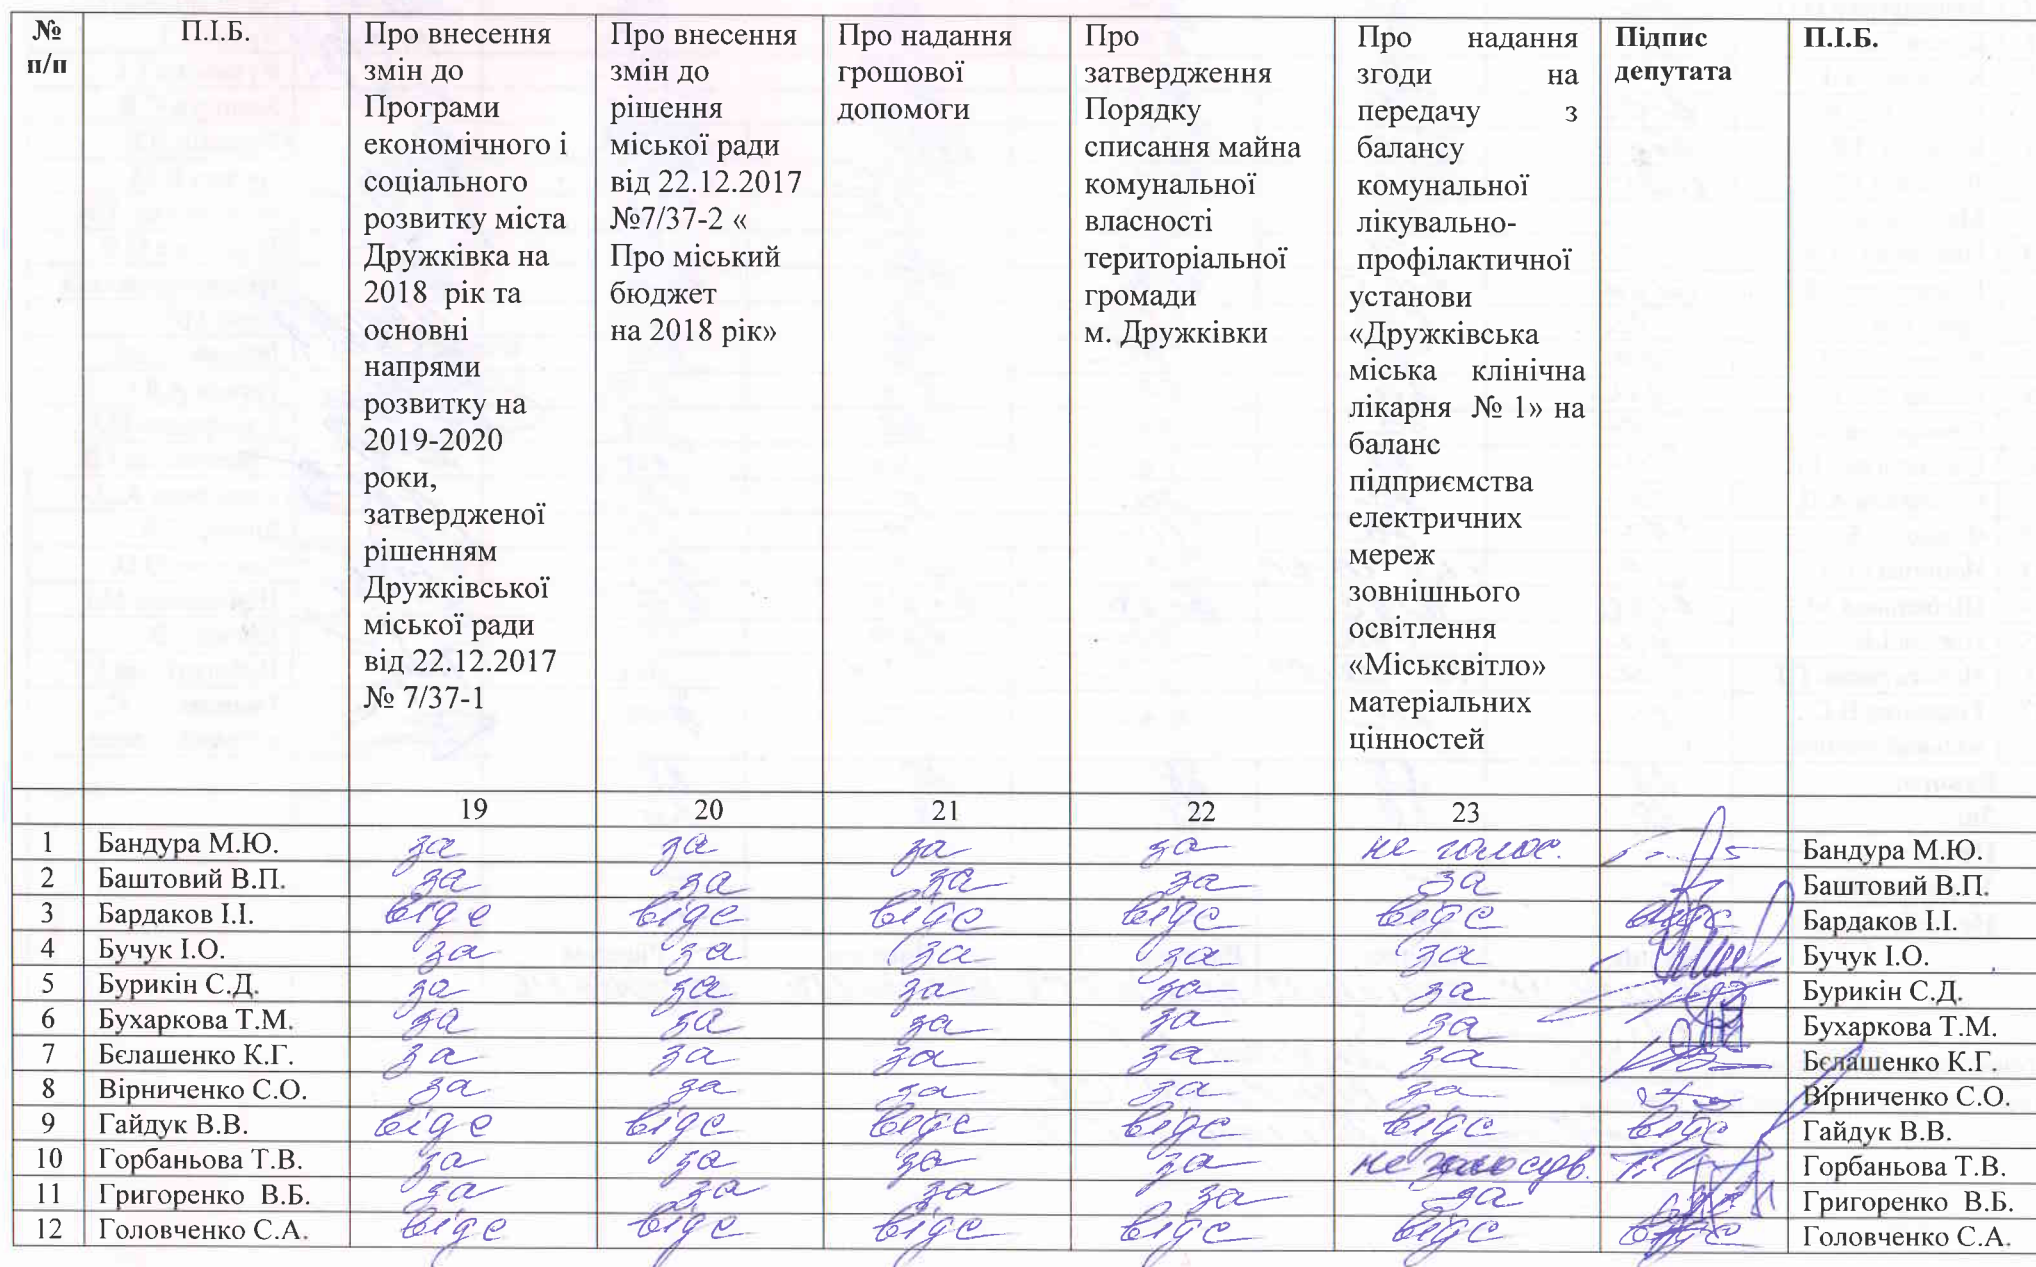 № п/п П.І.Б. Про внесення змін до Програми економічного і соціального розвитку міста Дружківка на 2018 рік та основні напрями розвитку на 2019-2020 роки, затвердженої рішенням Дружківської міської ради від 22.12.2017 № 7/37-1 Про внесення змін до рішення міської ради від 22.12.2017 №7/37-2 « Про міський бюджет на 2018 рік» Про надання грошової допомоги Про затвердження Порядку списання майна комунальної власності територіальної громади м. Дружківки Про надання згоди на передачу з балансу комунальної лікувально-профілактичної установи «Дружківська міська клінічна лікарня № 1» на баланс підприємства електричних мереж зовнішнього освітлення «Міськсвітло» матеріальних цінностей Підпис депутата П.І.Б.
19 20 21 22 23
1 Бандура М.Ю. за за за за не голос. Бандура М.Ю.
2 Баштовий В.П. за за за за за Баштовий В.П.
3 Бардаков І.І. відс відс відс відс відс відс Бардаков І.І.
4 Бучук І.О. за за за за за Бучук І.О.
5 Бурикін С.Д. за за за за за Бурикін С.Д.
6 Бухаркова Т.М. за за за за за Бухаркова Т.М.
7 Бєлашенко К.Г. за за за за за Бєлашенко К.Г.
8 Вірниченко С.О. за за за за за Вірниченко С.О.
9 Гайдук В.В. відс відс відс відс відс відс Гайдук В.В.
10 Горбаньова Т.В. за за за за не Горбаньова Т.В.
11 Григоренко В.Б. за за за за за Григоренко В.Б.
12 Головченко С.А. відс відс відс відс відс відс Головченко С.А.